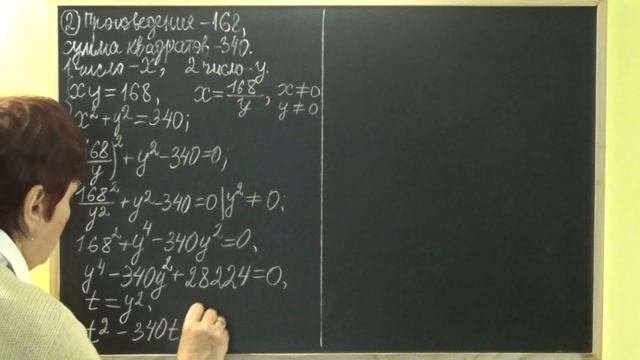 ② Произведение – 168,
сумма квадратов – 340.
1 число – x, 2 число – y.
xy = 168, x = 168/y, x ≠ 0
y ≠ 0
x² + y² = 340;
68/y)² + y² – 340 = 0;
168²/y² + y² – 340 = 0 | y² ≠ 0;
168² + y⁴ – 340y² = 0,
y⁴ – 340y² + 28224 = 0,
t = y²,
t² – 340t